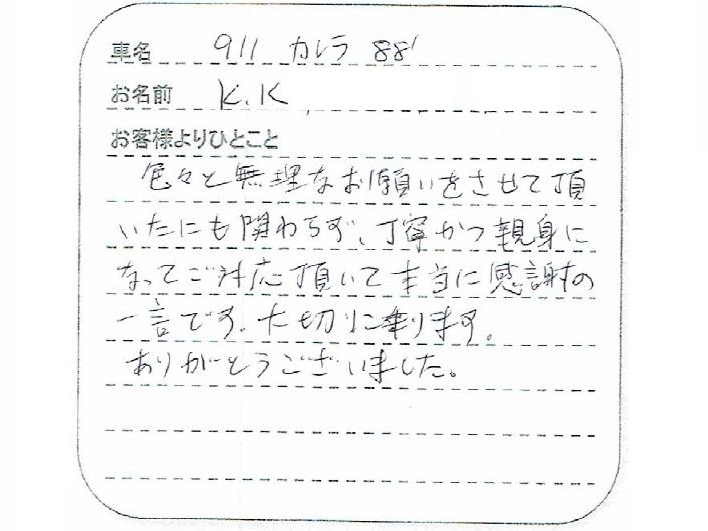 車名 911 カレラ 88'
お名前 K.K
お客様よりひとこと
色々と無理なお願いをさせて頂
いたにも関わらず、丁寧かつ親身に
なってご対応頂いて本当に感謝の
一言です。大切に乗ります。
ありがとうございました。